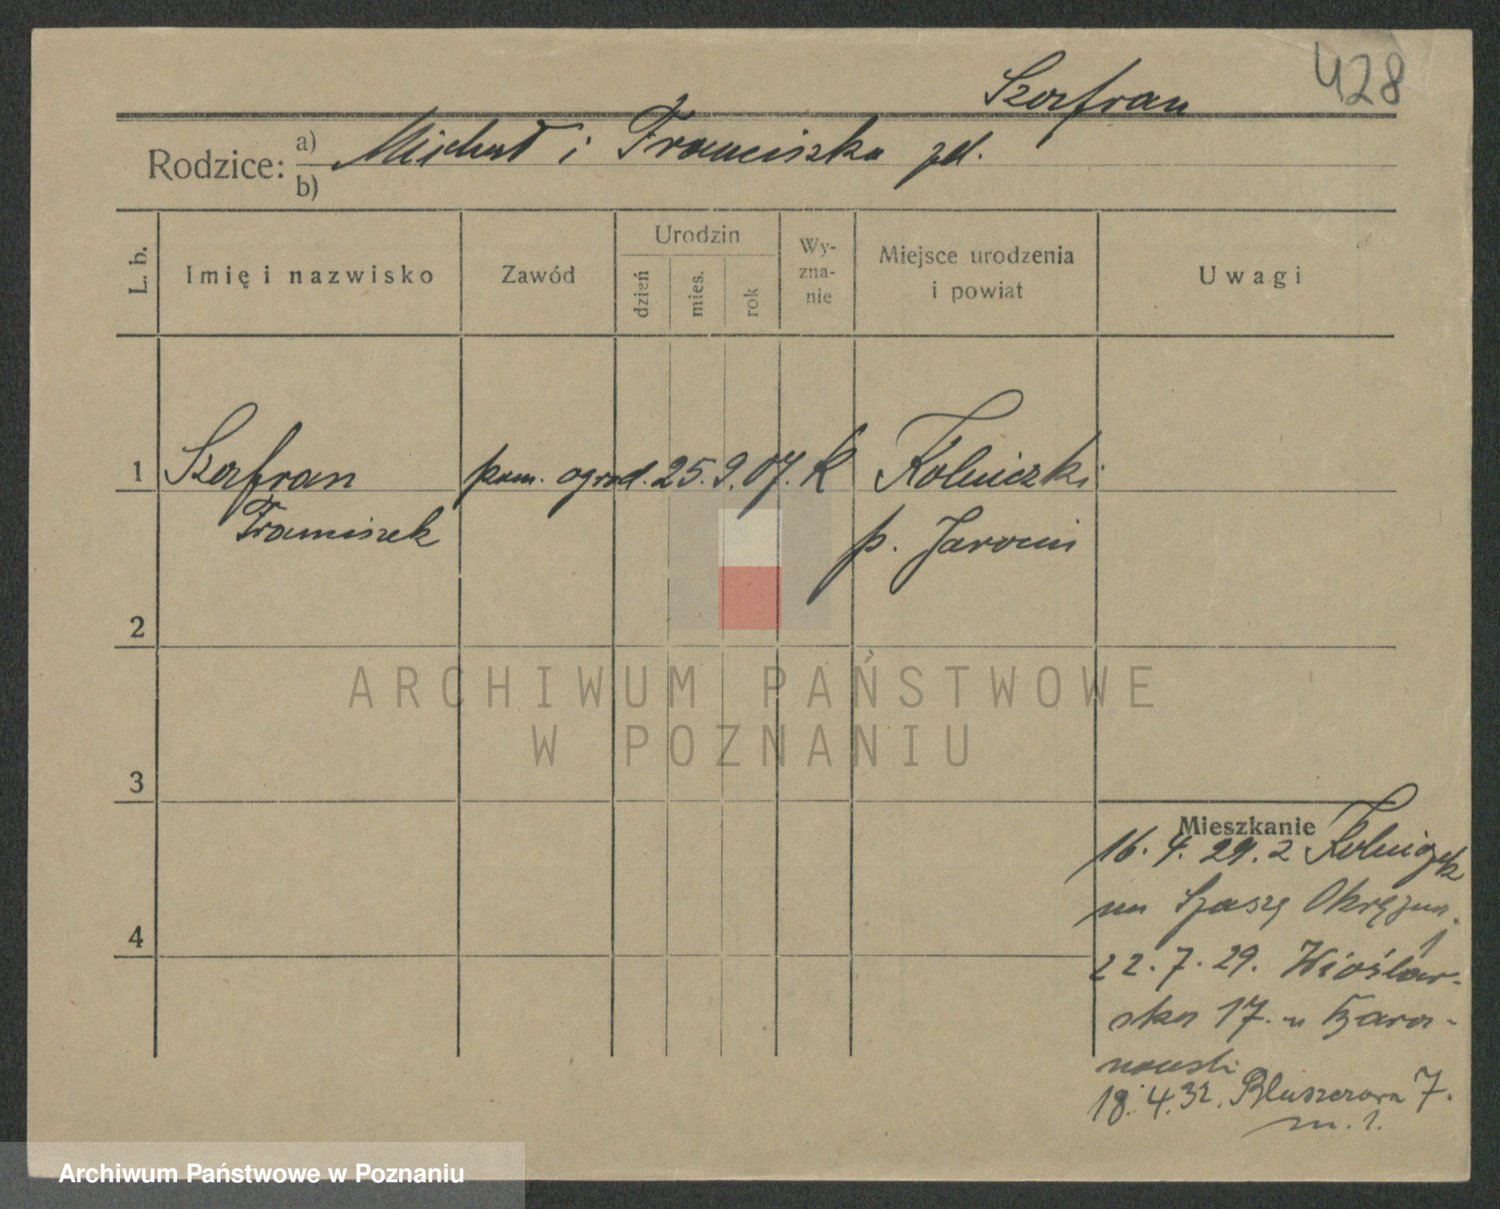 428
Szafran
Rodzice: a) Michał i Franciszka zd.
b)
L. b.
Imię i nazwisko
Zawód
Urodzin
dzień
mies.
rok
Wy-
zna-
nie
Miejsce urodzenia
i powiat
Uwagi
1 Szafran pom. ogrod. 25. 9. 07. K Kolniczki
Franciszek p. Jarocin
2
3
4
Mieszkanie
16. 4. 29. z Kolniczek
na Okrężna
22. 7. 29. Wioślar-
ska 17. u Bara-
nowski
18. 4. 32. Bluszczowa 7.
m. 1.
ARCHIWUM PAŃSTWOWE
W POZNANIU
Archiwum Państwowe w Poznaniu